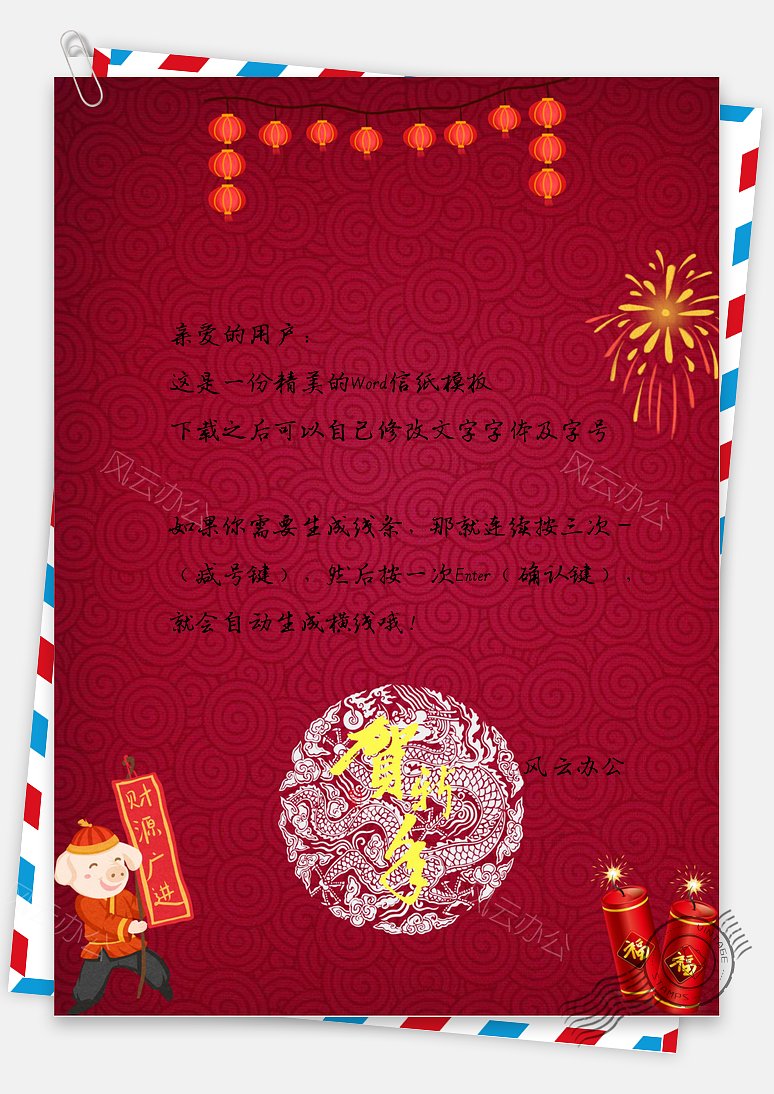 亲爱的用户：
这是一份精美的Word信纸模板
下载之后可以自己修改文字字体及字号
风云办公
风云办公
如果你需要生成线条，那就连续按三次－
（减号键），然后按一次Enter（确认键），
就会自动生成横线哦！
贺新年
风云办公
财源广进
风云办公
风云办公
福
福